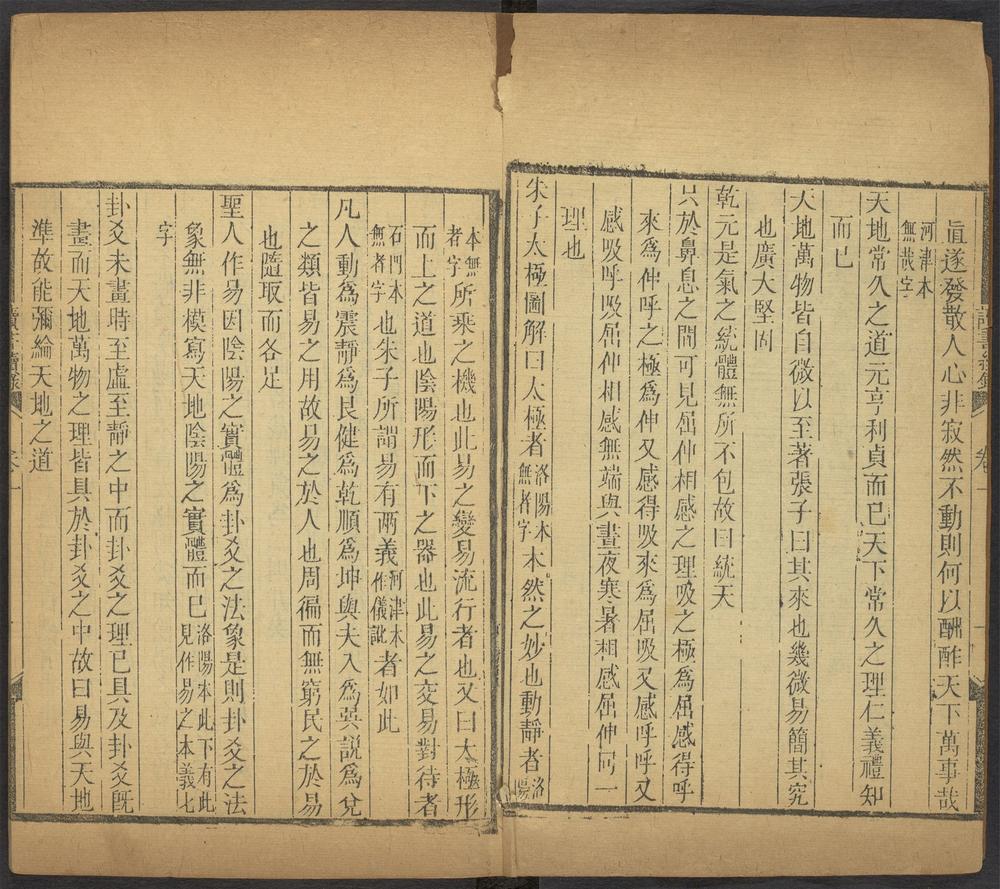 眞遂發散人心非寂然不動則何以酬酢天下萬事哉
河津本
無哉字
天地常久之道元亨利貞而已天下常久之理仁義禮知
而已
天地萬物皆自微以至著張子曰其來也幾微易簡其究
也廣大堅固
乾元是氣之統體無所不包故曰統天
只於鼻息之間可見屈伸相感之理吸之極爲屈感得呼
來爲伸呼之極爲伸又感得吸來爲屈吸又感呼呼又
感吸呼吸屈伸相感無端與晝夜寒暑相感屈伸同一
理也
朱子太極圖解曰太極者洛陽本無者字本然之妙也動靜者洛陽
本無者字所乘之機也此易之變易流行者也又曰太極形
而上之道也陰陽形而下之器也此易之交易對待者
石門本無者字也朱子所謂易有兩義河津本作儀訛者如此
凡人動爲震靜爲艮健爲乾順爲坤與夫入爲巽說爲兌
之類皆易之用故易之於人也周徧而無窮民之於易
也隨取而各足
聖人作易因陰陽之實體爲卦爻之法象是則卦爻之法
象無非模寫天地陰陽之實體而已洛陽本此下有此見作易之本義七
字
卦爻未畫時至虛至靜之中而卦爻之理已具及卦爻既
畫而天地萬物之理皆具於卦爻之中故曰易與天地
準故能彌綸天地之道
讀書續錄
卷一